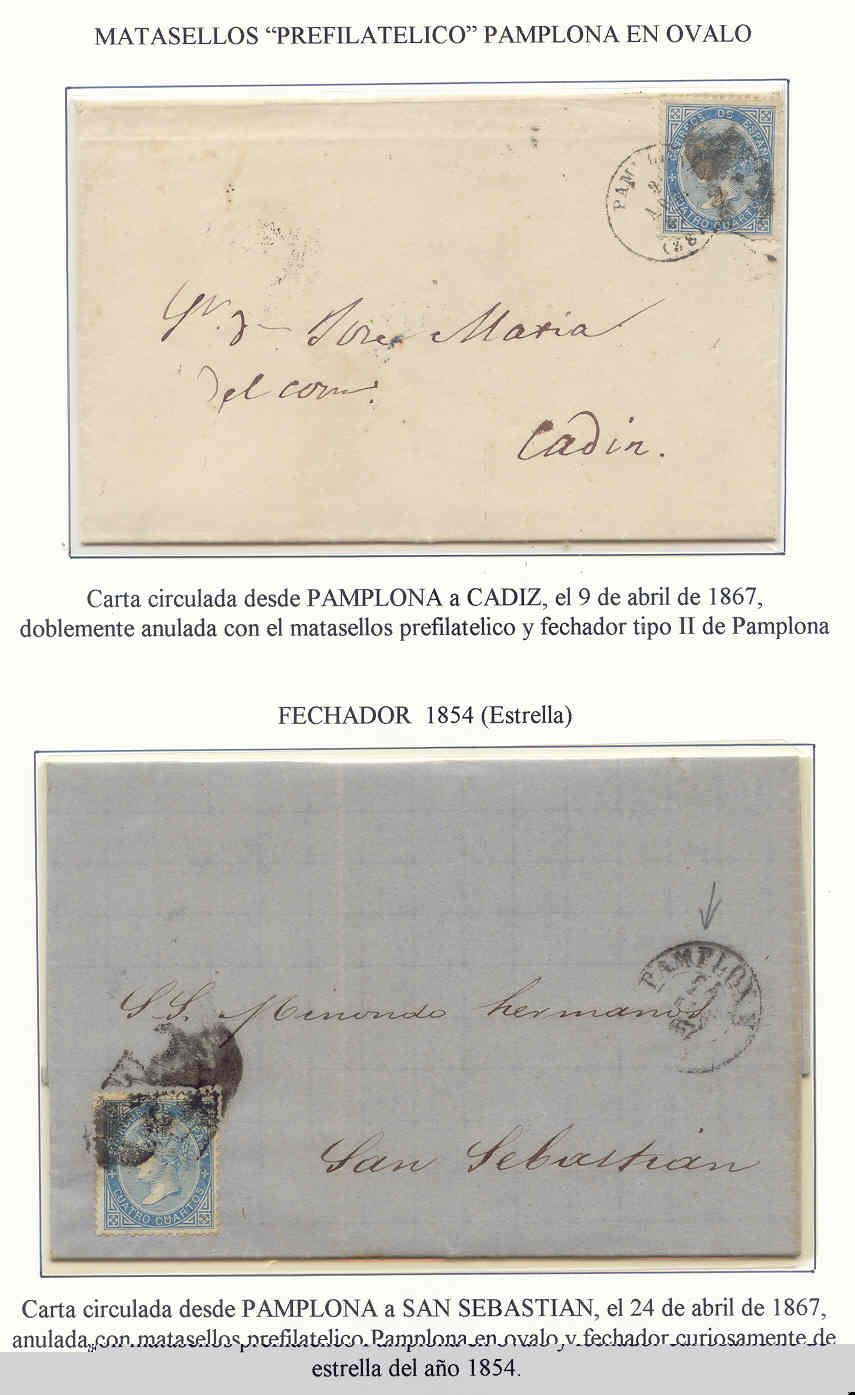 MATASELLOS “PREFILATELICO” PAMPLONA EN OVALO
CORREOS DE ESPAÑA
CUATRO CUARTOS
Sr. Dn Jose Maria
del
Cadiz.
Carta circulada desde PAMPLONA a CADIZ, el 9 de abril de 1867,
doblemente anulada con el matasellos prefilatelico y fechador tipo II de Pamplona
FECHADOR 1854 (Estrella)
PAMPLONA
S.S. Minondo hermanos
CUATRO CUARTOS
San Sebastián
Carta circulada desde PAMPLONA a SAN SEBASTIAN, el 24 de abril de 1867,
anulada con matasellos prefilatelico Pamplona en ovalo y fechador curiosamente de
estrella del año 1854.